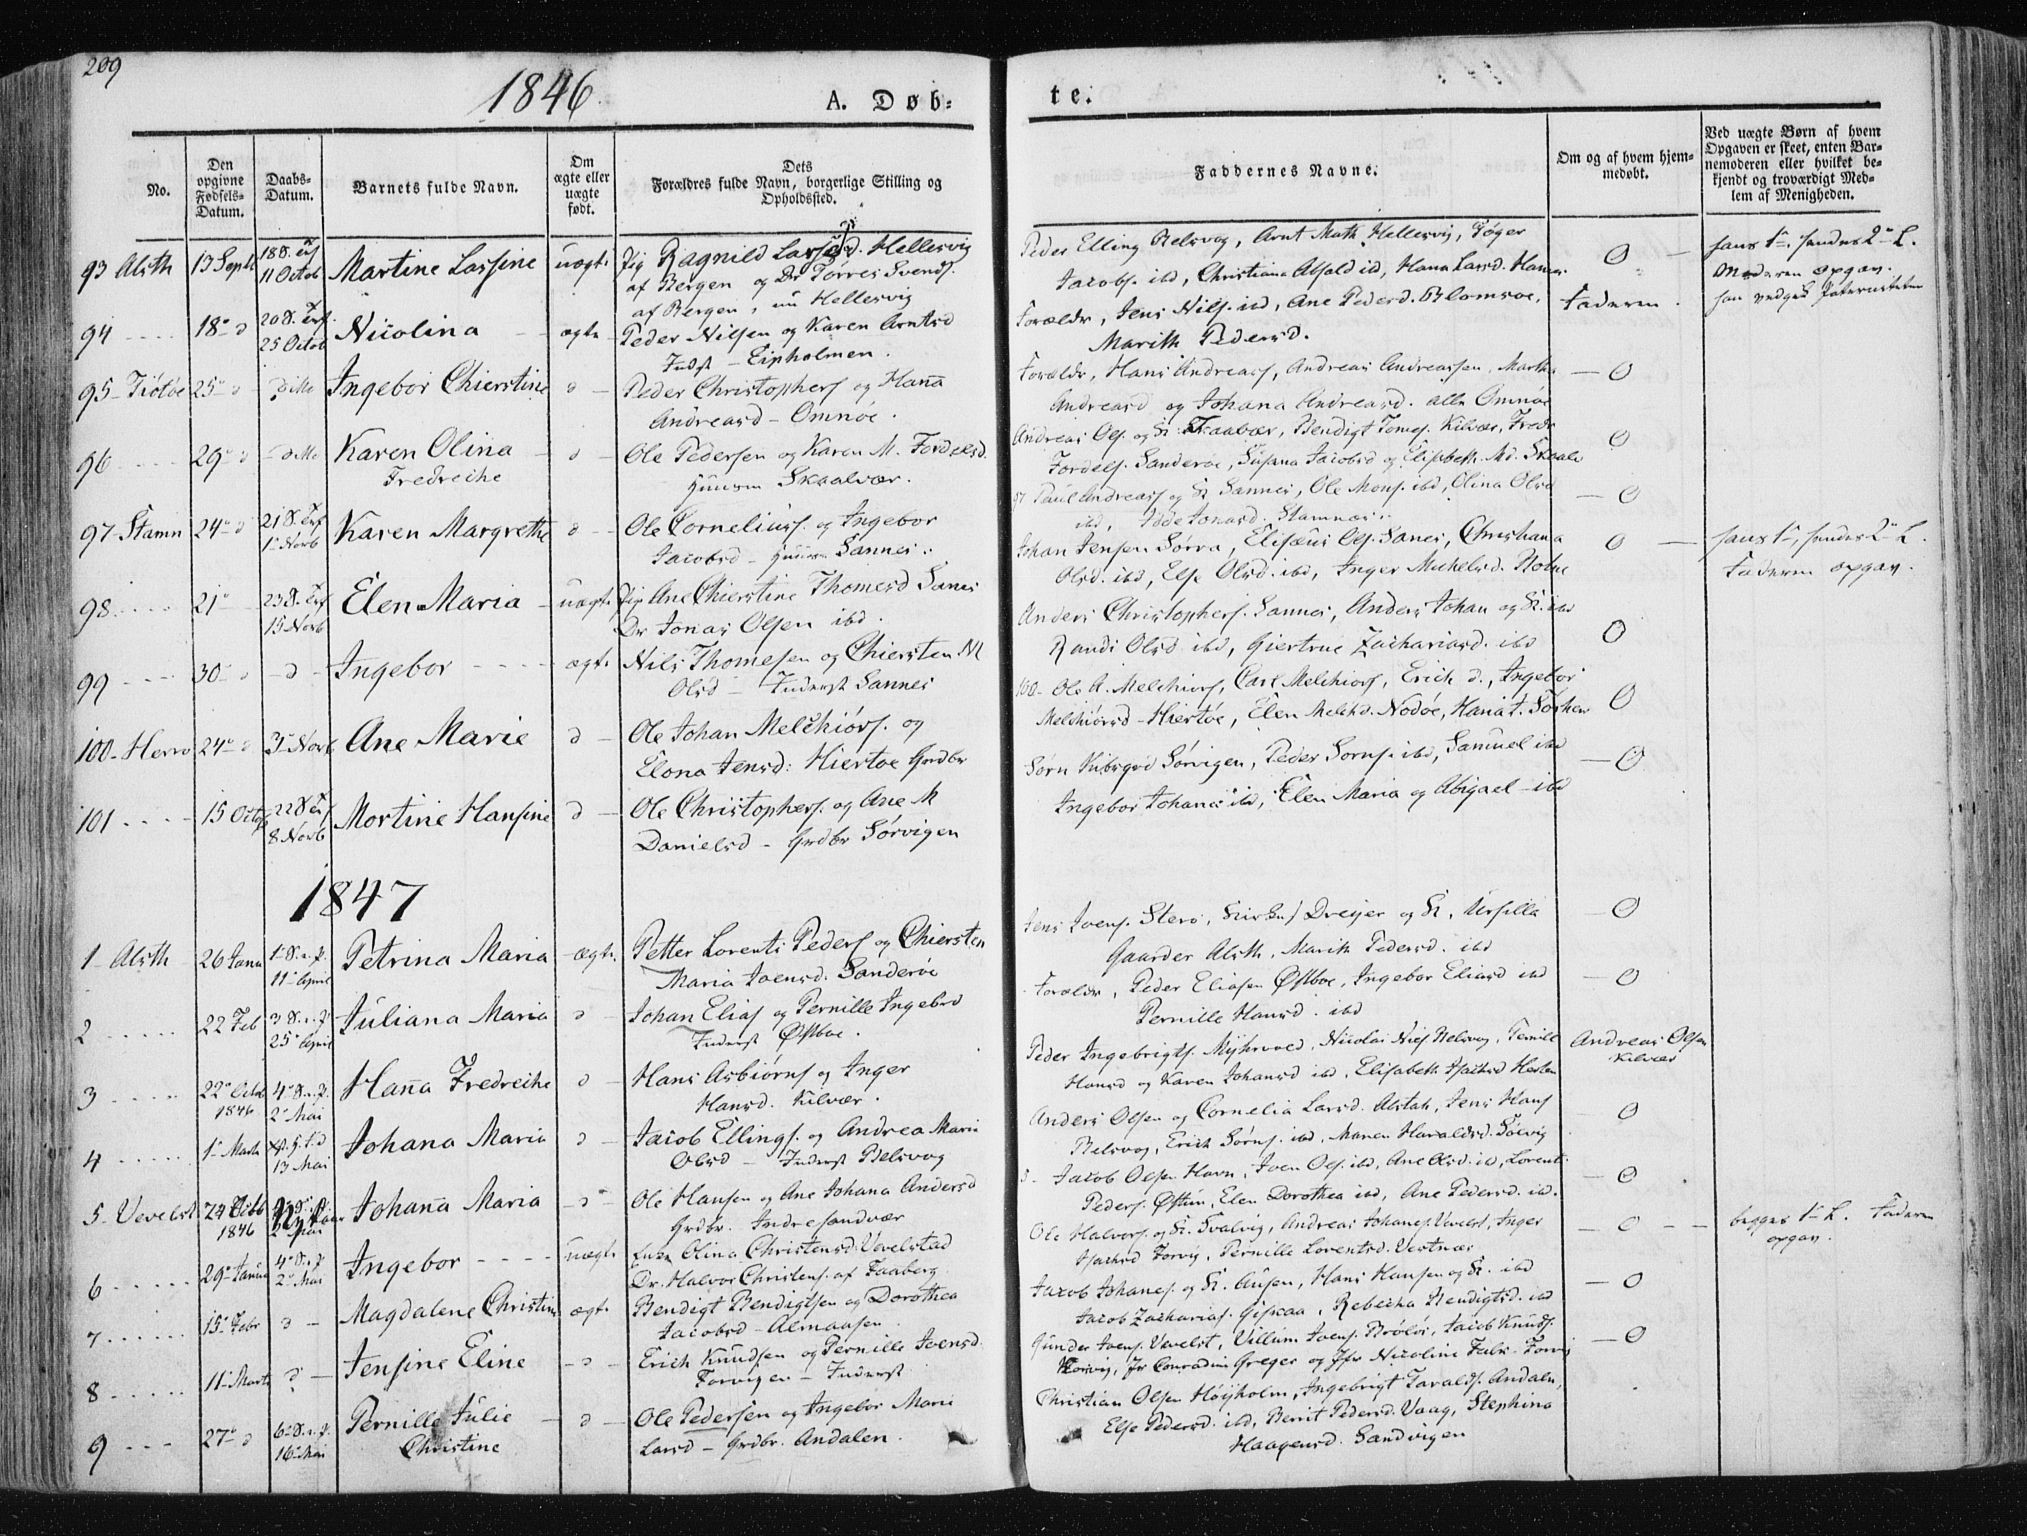 209
1846
A. Døb-
te.
No.
Den opgivne Fødsels-Datum.
Daabs-Datum.
Barnets fulde Navn.
Om ægte eller uægte født.
Dets Forældres fulde Navn, borgerlige Stilling og Opholdssted.
Faddernes Navne.
Om og af hvem hjem-medøbt.
Ved uægte Børn af hvem Opgaven er skeet, enten Bar-nemoderen eller hvilket be-kjendt og troværdigt Med-lem af Menigheden.
93 Alsth 13 Septb 18 S. Trf 11 Octob Martine Lassine uægte Pig Ragnild Lassed. Hellesvig
af Bergen og Dr Torres Svends.
af Bergen, nu Hellesvig
Peder Elling Belsvog, Arnt Math Hellesvig,
Jacobs. ibd, Christiana ibd, Hana Larsd.
O
hans 1ste, hendes 2den L.
Moderen opgav.
han vedgik Paterniteten
94 18 d 20 S. Trf. 25 Octob Nicolina ægte Peder Nilsen og Karen Arntsd
Inderst - Eipholmen.
Forældr, Jens Nils. ibd, Ane Pedersd. Blomsoe,
Marith Pedersd.
Faderen
95 Tiötöe 25 d ditto Ingebor Chierstine d Peder Christophers og Hana
Andreasd - Omnöe.
Forældr, Hans Andreass, Andreas Andreassen, Marth
Andreasd og Johana Andreasd. alle Omnöe
O
96 29 d ditto Karen Olina
Fredreche
d Ole Pedersen og Karen M. Fordelsd
Huusm Skaalvær.
Andreas Ols. og K. Skaalvær, Bendigt Tomes. Kilvær, Fredr
Fordels. Sanderöe, Susana Jacobsd og Elisabeth Md. Skaalv
O
97 Stamn 24 d 21 S. Trf 1 Novb Karen Margrethe d Ole Cornelius. og Ingebor
Jacobsd - Huusm Sannes.
97 Paul Andreass og K Sannes, Ole Mons. ibd, Olina Olsd
ibd, Jonasd. Stamnæs.
O
98 21 23 S. Trf 15 Novb Elen Maria uægte Pig Ane Chierstine Thomesd Sanes
Dr Jonas Olsen ibd.
Johan Jensen Sörra, Elisæus Ols. Sanes, Christiana
Olsd. ibd, Else Olsd. ibd, Inger Michelsd.
O
hans 1ste, hendes 2den L.
Faderen opgav.
99 30 d d Ingebor ægte Nils Thomesen og Chiersten M
Olsd - Inderst Sannes
Anders Christophers. Sannes, Anders Johan og K. ibd
Randi Olsd ibd, Giertrue Zachariasd. ibd
O
100 Herrö 24 d 3 Novb Ane Marie d Ole Johan Melchiörs. og
Elona Jensd: Hiertöe Grdbr
100 Ole A. Melchiors, Carl Melchiors, Erich d., Ingebor
Melchiörsd - Hiertöe, Elen Melchd. Nodöe,
O
101 15 Octob 22 S Trf 8 Novb Mortine Hansine d Ole Christophers. og Ane M
Danielsd - Grdbr Sörvigen
Sörn Sörvigen, Peder Sörns. ibd, Samuel ibd
Ingebor Johana ibd, Elen Maria og Abigael ibd
O
1847
1 Alsth 26 Janu 1 S. e. p. 11 April Petrina Maria ægte Petter Lorents Peders og Chiersten
Maria Joensd. Sanderöe
Jens Joens. Sterö, Dreyer og K. Ursilla
Gaarder Alsth, Marith Pedersd. ibd
O
2 22 Feb 3 S. e. p 25 April Juliana Maria d Johan Elias og Pernille Ingebrd
Inderst Östboe.
Forældr, Peder Eliasen Östboe, Ingebor Eliasd ibd
Pernille Hansd. ibd
O
3 22 Octob 1846 4 S. e. p. 2 Mai Hana Fredreche d Hans Asbiörns og Inger
Hansd. Kilvær.
Peder Ingebrigts. Myhrvold, Nicolai Belsvog, Pernille
Hansd og Karen Johansd ibd, Elisabeth
Andreas Olsen
Kilvær
4 1 Marts 13 Mai Johana Maria d Jacob Ellings. og Andrea Maria
Olsd - Inderst Belsvog
Anders Olsen og Cornelia Larsd. Alstah, Jens Hans
Belsvog, Erich Sörns. ibd, Maren Haraldsd. Sölvig
O
5 Vevelst 24 1846 2 Mai Johana Maria d Ole Hansen og Ane Johana Andersd
Grdbr. Indresandvær
5 Jacob Olsen Havn, Joen Ols. ibd, Ane Olsd. ibd, Lorents
Peders. Östun, Elen Dorothea ibd, Ane Pedersd. ibd.
O
6 29 Janua 4 S. e. p 2 Mai Ingebor uægte Enke Olina Christensd: Vevelstad
Dr. Halvor Christens. af Faaberg
Ole Halvors. og K. Tvalvig, Andreas Johanes. Vevelst, Inger
Forvig, Pernille Lorentsd. Vestnæs
O
begges 1ste L. Faderen
opgav.
7 15 Febr d Magdalene Christine ægte Bendigt Bendigtsen og Dorothea
Jacobsd - Almaasen
Jacob Johanes. og K. Ausen, Hans Hansen og K. ibd
Jacob Zacharias. Giskaa, Rebecha Bendigtsd. ibd
O
8 11 Marts d Jensine Eline d Erich Knudsen og Pernille Joensd
Forvigen - Inderst
Gunder Joens. Vevelst, Villum Joens. Brölös, Jacob Knuds.
Forvig, Hr Conradine Greger og Jfr Nicoline Falc- Forvig
O
9 27 d 6 S. e. p. 16 Mai Pernille Julie
Christine
d Ole Pedersen og Ingebor Marie
Larsd - Grdbr. Andalen.
Christian Olsen Höyholm, Ingebrigt Taralds. Andalen,
Else Pedersd. ibd, Berit Pedersd. Vaag, Stephina
Haagensd. Sandvigen